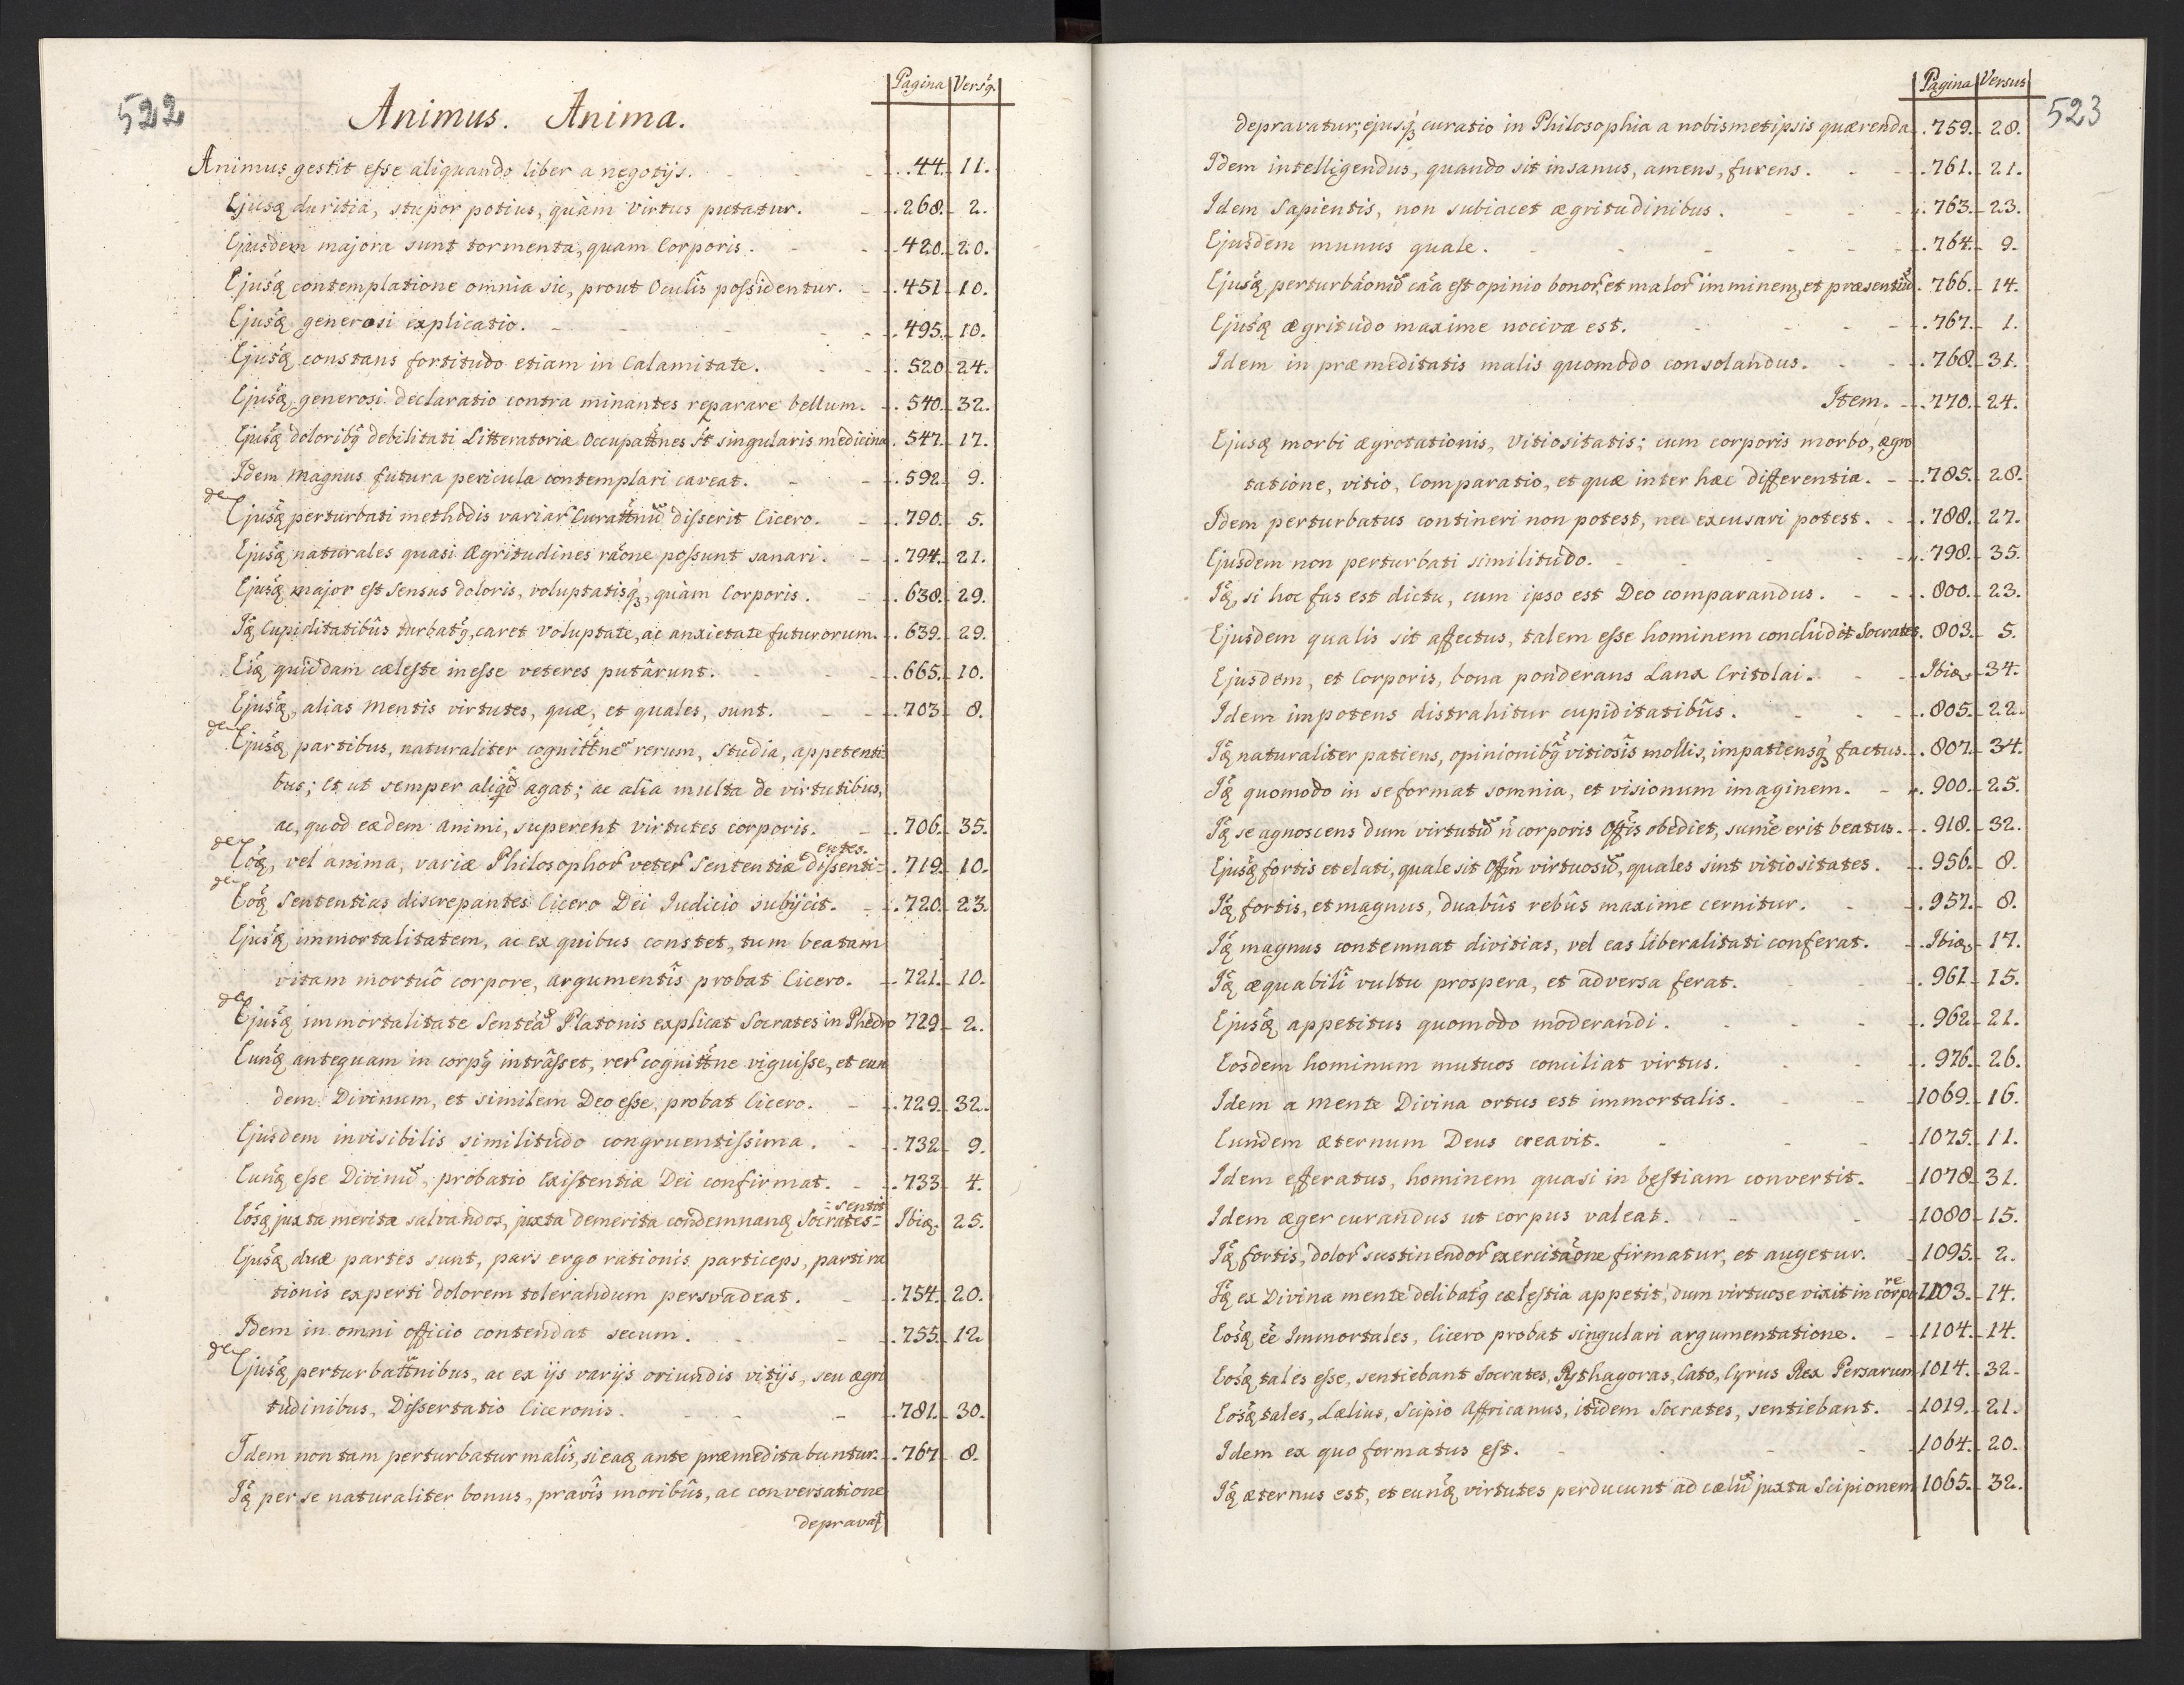 522
Pagina Versq.
Animus. Anima.
Animus gestit esse aliquando liber a negotijs. 44. 11.
Ejusq duritia, stupor potius, quàm virtus putatur. 268. 2.
Ejusdem majora sunt tormenta, quam Corporis. 420. 20.
Ejusq contemplatione omnia sic, prout Oculis possidentur. 451 10.
Ejusq generosi explicatio. 495. 10.
Ejusq constans fortitudo etiam in Calamitate. 520 24.
Ejusq generosi declaratio contra minantes reparare bellum. 540. 32.
Ejusq doloribq debilitati Litteratoriæ Occupattnes st singularis medicina 547. 17.
Idem magnus futura pericula contemplari caveat. 592 9.
de Ejusq perturbati methodis variar Curattnũ disserit Cicero. 790. 5.
Ejusq naturales quasi Ægritudines raone possunt sanari. 794. 21.
Ejusq major est sensus doloris, voluptatisq, quàm Corporis. 638. 29.
Iq Cupiditatibûs turbatq, caret voluptate, ac anxietate futurorum. 639. 29.
Eiq quiddam cæleste inesse veteres putârunt. 665. 10.
Ejusq, alias Mentis virtutes, quæ, et quales, sunt. 703 8.
de Ejusq partibus, naturaliter cognittne rerum, studia, appetenti
bus; Et ut semper aliqd agat; ac alia multa de virtutibus,
ac, quod eædem animi, superent virtutes corporis. 706. 35.
entes.
de Eoq, vel anima, variæ Philosophor veter sententiæ dissenti= 719 10.
de Eoq Sententias discrepantes Cicero Dei Iudicio subijcit. 720. 23.
Ejusq immortalitatem, ac ex quibus constet, tum beatam
vitam mortuô corpore, argumentis probat Cicero. 721. 10.
de Ejusq immortalitate Senteã Platonis explicat Socrates in Phedro 729 2.
Eunq antequam in corpq intrâsset, rer cognittne viguisse, et eun
dem Divinum, et similem Deo esse, probat Cicero. 729. 32.
Ejusdem invisibilis similitudo congruentissima. 732 9.
Eunq esse Divinũ, probatio Existentiæ Dei confirmat. 733 4.
=sentit
Eosq juxta merita salvandos, juxta demerita condemnanq Socrates= Ibiq. 25.
Ejusq duæ partes sunt, pars ergo rationis particeps, parti ra
tionis experti dolorem tolerandum persvadeat. 754. 20.
Idem in omni officio contendat secum. 755. 12
de Ejusq perturbattnibus, ac ex ijs varijs oriundis vitijs, seu ægri
tudinibus, Dissertatio Ciceronis. 781. 30.
Idem non tam perturbatur malis, si eaq ante præmeditabuntur. 767 8.
Iq per se naturaliter bonus, pravis moribûs, ac conversatione
depravat
Pagina Versus
523
depravatur; ejusq curatio in Philosophia a nobismetipsis quærenda 759. 28.
Idem intelligendus, quando sit insanus, amens, furens. 761. 21.
Idem Sapientis, non subiacet ægritudinibus. 763. 23.
Ejusdem munus quale. 764. 9.
Ejusq, perturbaonũ caa est opinio bonor, et malor imminenq, et præsentiũ. 766. 14.
Ejusq ægritudo maxime nociva est. 767. 1.
Idem in præmeditatis malis quomodo consolandus. 768. 31.
Item. 770. 24.
Ejusq morbi ægrotationis, Vitiositatis; cum corporis morbo, ægro
tatione, vitio, Comparatio, et quæ inter hæc differentia. 785. 28.
Idem perturbatus contineri non potest, nec excusari potest. 788. 27.
Ejusdem non perturbati similitudo. 798. 35.
Iq, si hoc fas est dictu, cum ipso est Deo comparandus. 800. 23.
Ejusdem qualis sit affectus, talem esse hominem concludit Socrates. 803. 5.
Ejusdem, et Corporis, bona ponderans Lanx Critolai. Ibiq. 34.
Idem impotens distrahitur cupiditatibûs. 805. 22.
Iq naturaliter patiens, opinionibq vitiosis mollis, impatiensq factus. 807. 34.
Iq quomodo in se format somnia, et visionum imaginem. 900. 25.
Iq se agnoscens dum virtutũ ñ corporis offis obediet, sume erit beatus. 918. 32.
Ejusq fortis et elati, quale sit offin virtuosũ, quales sint vitiositates. 956. 8.
Iq fortis, et magnus, duabûs rebûs maxime cernitur. 957. 8.
Iq magnus contemnat divitias, vel eas liberalitati conferat. Ibiq. 17.
Iq æquabili vultu prospera, et adversa ferat. 961 15.
Ejusq appetitus quomodo moderandi. 962 21.
Eosdem hominum mutuos conciliat virtus. 976. 26.
Idem a mente Divina ortus est immortalis. 1069. 16.
Eundem æternum Deus creavit. 1075. 11.
Idem efferatus, hominem quasi in bestiam convertit. 1078 31.
Idem æger curandus ut corpus valeat. 1080 15.
Iq fortis, dolor sustinendor exercitaone firmatur, et augetur. 1095. 2.
re
Iq ex Divina mente delibatq cælestia appetit, dum virtuose vixit in corpo 1103. 14.
Eosq ee Immortales, Cicero probat singulari argumentatione. 1104. 14.
Eosq tales esse, sentiebant Socrates, Pythagoras, Cato, Cyrus Rex Persarum 1014. 32.
Eosq tales, Lælius, Scipio Affricanus, itidem Socrates, sentiebant. 1019. 21.
Idem ex quo formatus est. 1064. 20.
Iq æternus est, et eunq virtutes perducunt ad cælũ juxta Scipionem 1065. 32.